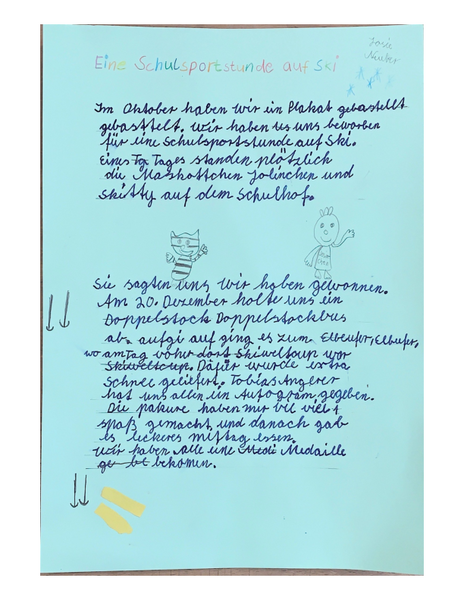 Josie
Eine Schulsportstunde auf Ski
Im Oktober haben wir ein Plakat gebastellt
gebasttelt. Wir haben us uns beworben
für eine Schulsportstunde auf Ski.
Eines Tages standen plötzlich
die Maskottchen Jolinchen und
Skitty auf dem Schulhof.
Sie sagten uns wir haben gewonnen.
Am 20. Dezember holte uns ein
Doppelstock Doppelstockbus
ab. auf ging es zum Elbeufer, Elbufer,
wo am Tag voher dort Skiweltcup wor
Skiweltcup. Dafür wurde extra
Schnee geliefert. Tobias Angerer
hat uns allen ein Autogram gegeben.
Die haben mir viel
spaß gemacht, und danach gab
es leckeres mittag essen.
Wir haben alle eine Medi Medaille
bekomen.